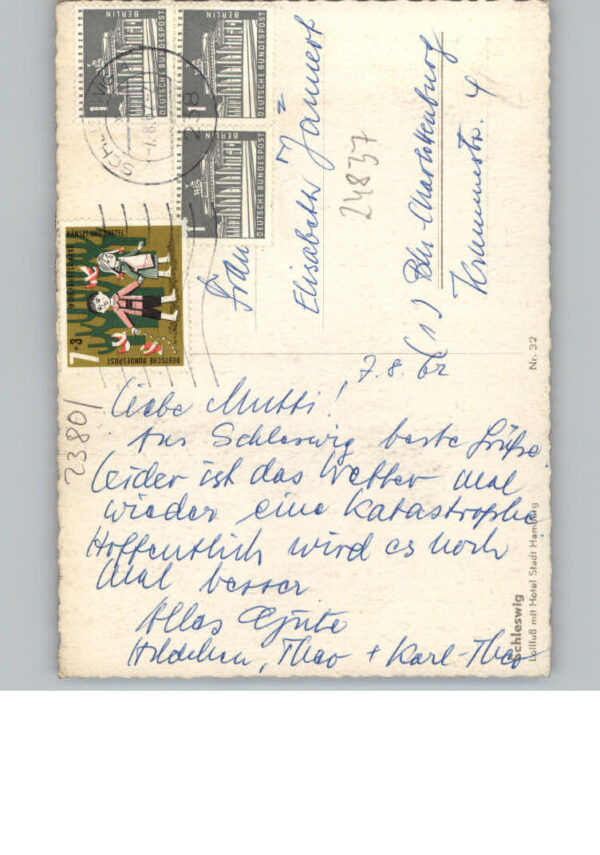 7.8.62
Liebe Mutti!
Aus Schleswig beste Grüße
Leider ist das Wetter mal
wieder eine Katastrophe
Hoffentlich wird es noch
mal besser
Alles Gute
Hildchen, Theo + Karl-Theo
Frau
Elisabeth Jännert
(1) Bln-Charlottenburg
Krummestr. 4
24837
23801
DEUTSCHE BUNDESPOST
BERLIN
DEUTSCHE BUNDESPOST
BERLIN
DEUTSCHE BUNDESPOST
BERLIN
7+3
DEUTSCHE BUNDESPOST
WOHLFAHRTSMARKE
HÄNSEL UND GRETEL
Nr. 32
Schleswig
Lollfuß mit Hotel Stadt Hamburg